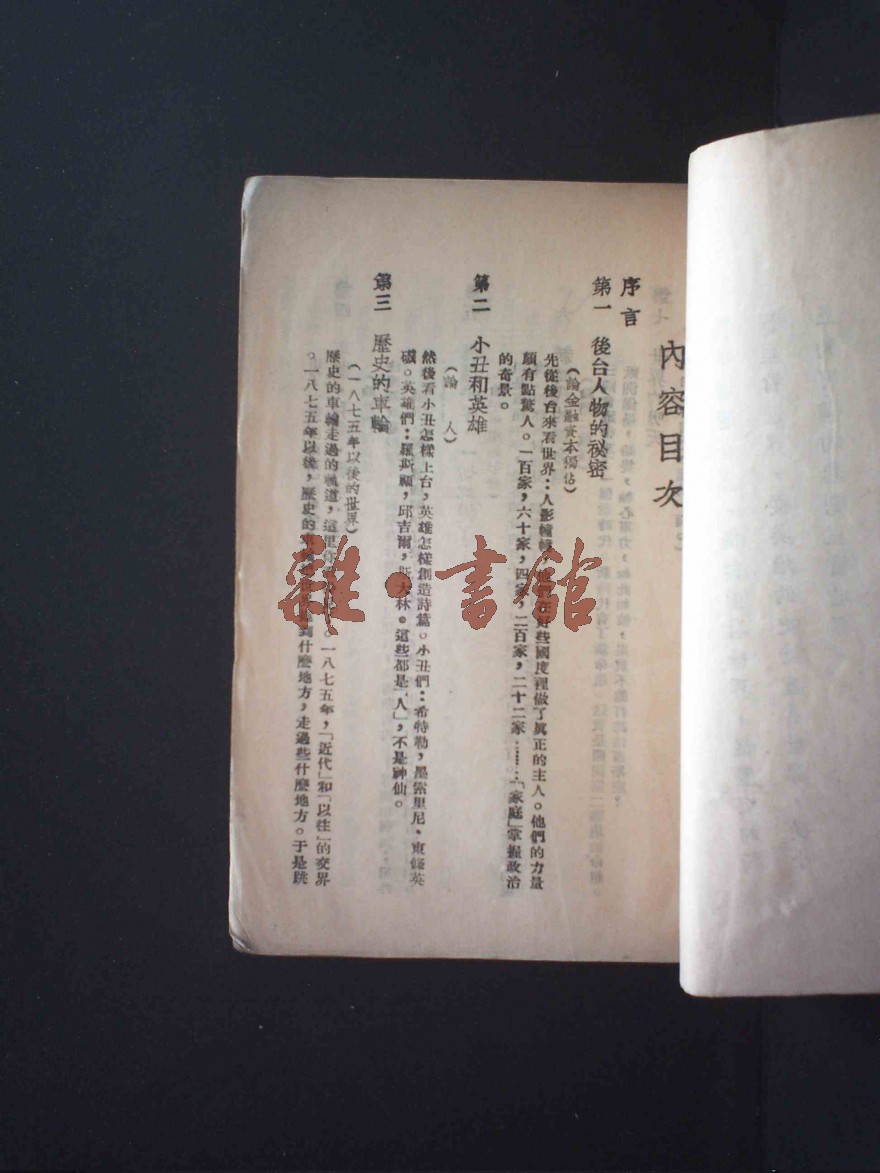 內容目次
序言
第一　後台人物的祕密
（論金融資本獨佔）
先從後台來看世界：人影幢幢，他們在好些國度裡做了眞正的主人。他們的力量
頗有點驚人。一百家，六十家，四家，二百家，二十二家……「家庭」掌握政治
的奇景。
第二　小丑和英雄
（論　人）
然後看小丑怎樣上台，英雄怎樣創造詩篇。小丑們：希特勒，墨索里尼、東條英
磯。英雄們：羅斯福，邱吉爾，斯大林。這些都是「人」，不是神仙。
第三　歷史的車輪
（一八七五年以後的世界）
歷史的車輪走過的軌道，這里。一八七五年，「近代」和「以往」的交界
。一八七五年以後，歷史的車到什麼地方，走過些什麼地方。于是跳
雜·書館